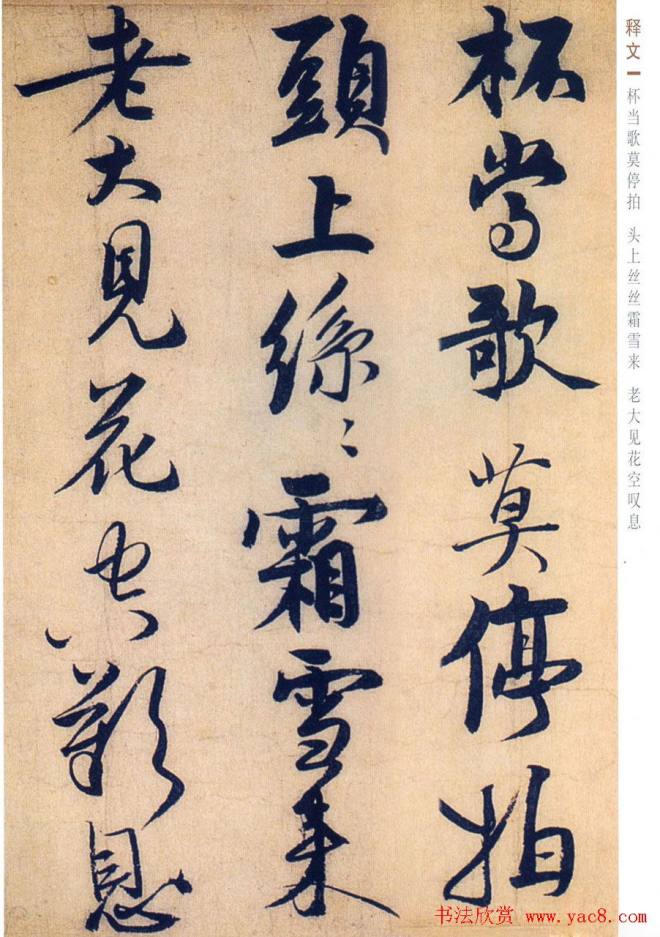 杯當歌莫停拍
頭上絲〻霜雪来
老大見花空歎息
释文一 杯当歌莫停拍 头上丝丝霜雪来 老大见花空叹息
书法欣赏 www.yac8.com